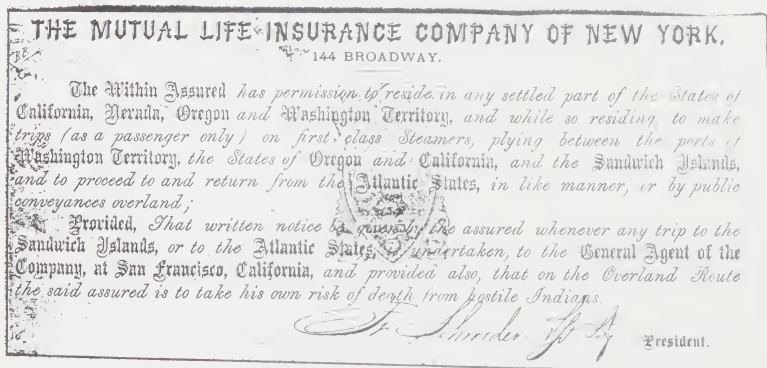 THE MUTUAL LIFE INSURANCE COMPANY OF NEW YORK.
144 BROADWAY.
The Within Assured has permission to reside in any settled part of the States of
California, Nevada, Oregon and Washington Territory, and while so residing to make
trips (as a passenger only) on first class Steamers, plying between the ports of
Washington Territory, the States of Oregon and California, and the Sandwich Islands,
and to proceed to and return from the Atlantic States, in like manner, or by public
conveyances overland;
Provided, That written notice be given by the assured whenever any trip to the
Sandwich Islands, or to the Atlantic States, is undertaken, to the General Agent of the
Company, at San Francisco, California, and provided also, that on the Overland Route
the said assured is to take his own risk of death from hostile Indians.
Fr. Schroeder
President.